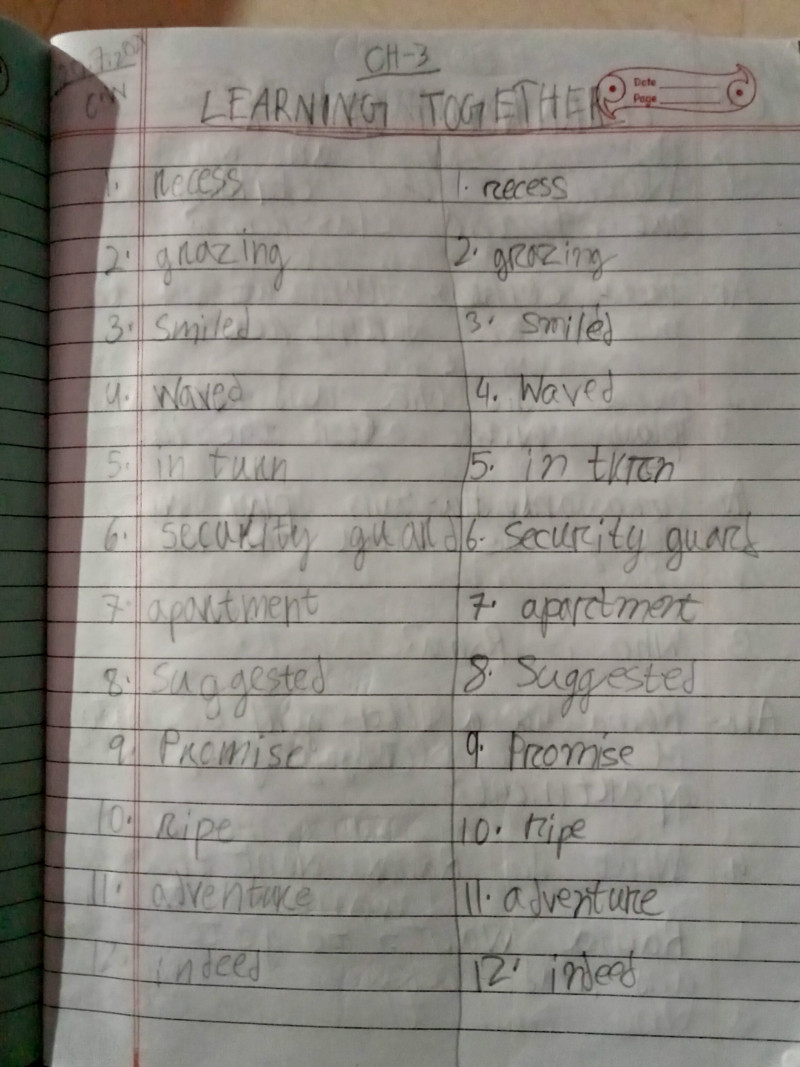 CH-3
C.W
LEARNING TOGETHER
Date
Page
1. recess 1. recess
2. grazing 2. grazing
3. Smiled 3. Smiled
4. Waved 4. Waved
5. in turn 5. in turn
6. security guard 6. security guard
7. apartment 7. apartment
8. Suggested 8. Suggested
9. Promise 9. Promise
10. Ripe 10. ripe
11. adventure 11. adventure
12. indeed 12. indeed